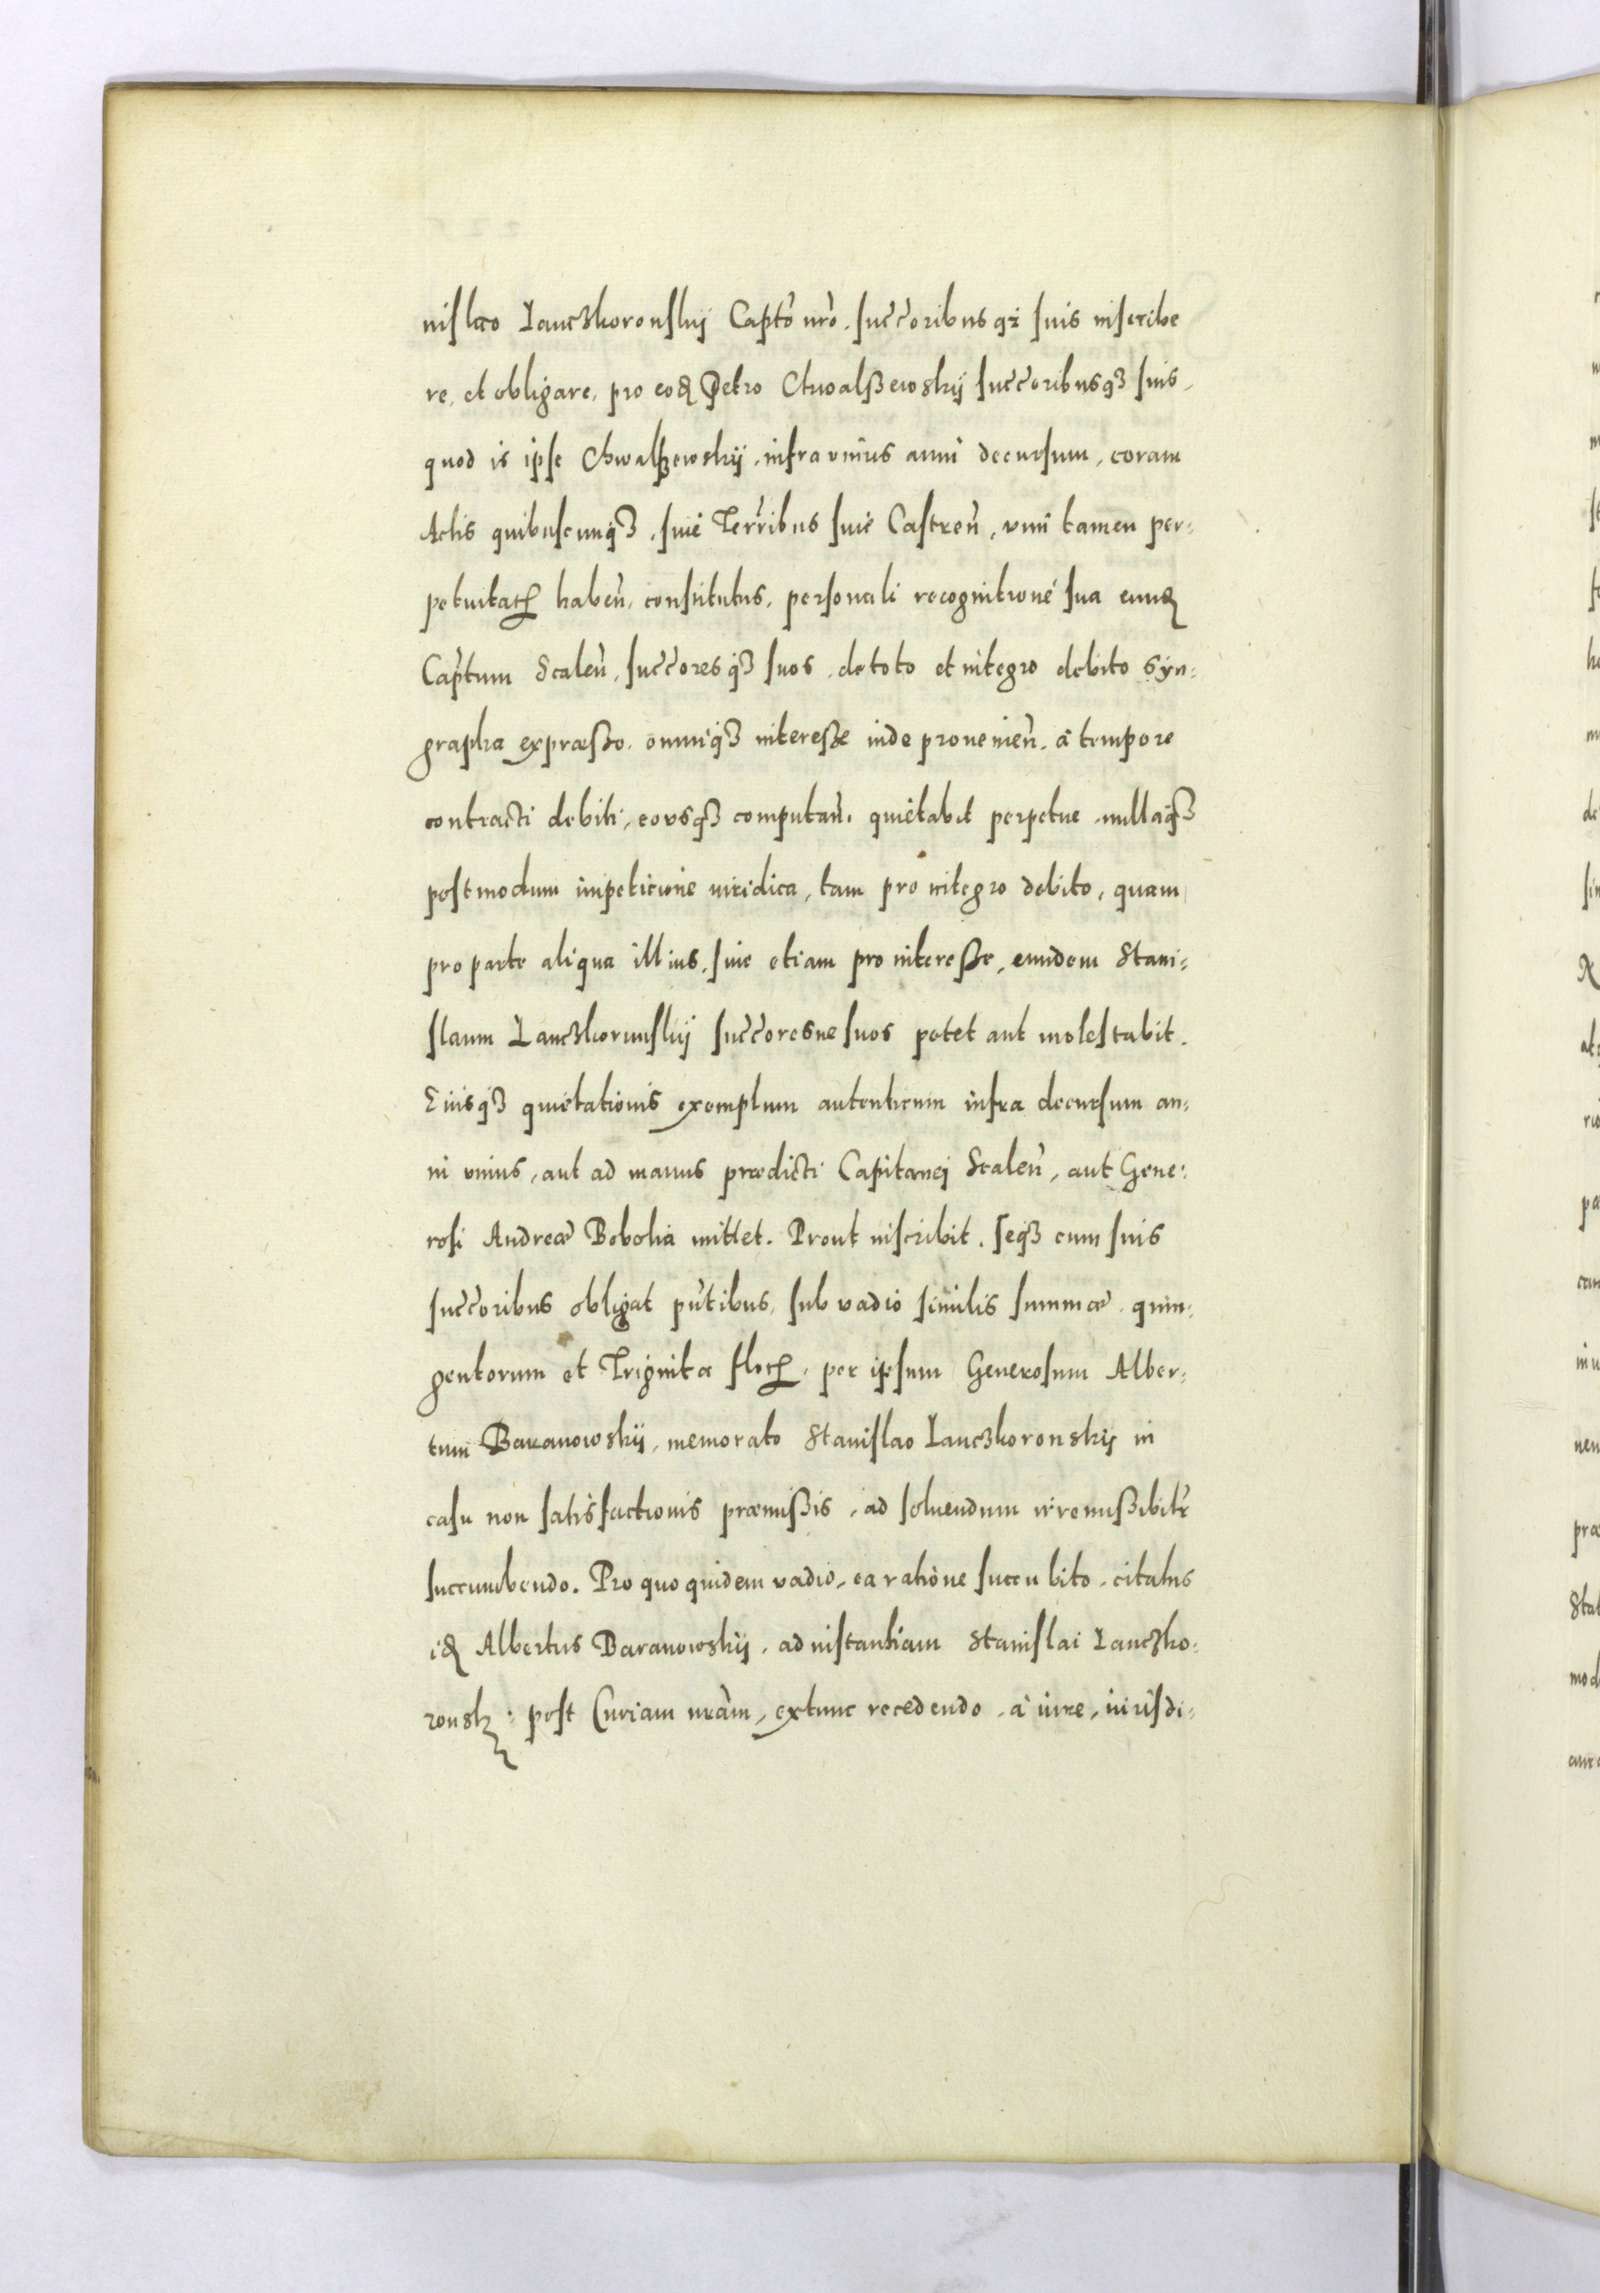 nislao Lanczkoronskij Capto nro. succoribusqz suis inscribe
re, et obligare, pro eod Petro Chwalßewskij succoribusqz suis,
quod is ipse Chwalßewskij, infra unius anni decursum, coram
Actis quibuscunqz, siue Terribus siue Castren, vim tamen per-
petuitat haben, constitutus, personali recognitione sua eund
Captum Scalen, succoresqz suos, de toto et integro debito syn-
grapha expræsso, omniqz interesse inde prouenien, à tempore
contracti debiti, eousqz computan, quietabit perpetue, nullaqz
postmodum impeticione iuridica, tam pro integro debito, quam
pro parte aliqua illius, siue etiam pro interesse, eundem Stani-
slaum Lanczkorunskij succoresue suos petet aut molestabit.
Eiusqz quietationis exemplum autenticum infra decursum an-
ni unius, aut ad manus prædicti Capitanej Scalen, aut Gene-
rosi Andreæ Bobolia mittet. Prout inscribit. seqz cum suis
succoribus obligat pntibus, sub vadio similis summæ, quin-
gentorum et Triginta flor, per ipsum Generosum Alber-
tum Baranowskij, memorato Stanislao Lanczkoronskij in
casu non satisfactionis præmissis, ad soluendum irremissibilr
succumbendo. Pro quo quidem vadio, ea ratione succubito, citatus
id Albertus Baranowskij, ad instantiam Stanislai Lanczko-
ronsk: post Curiam nram, extunc recedendo, à iure, iurisdi-